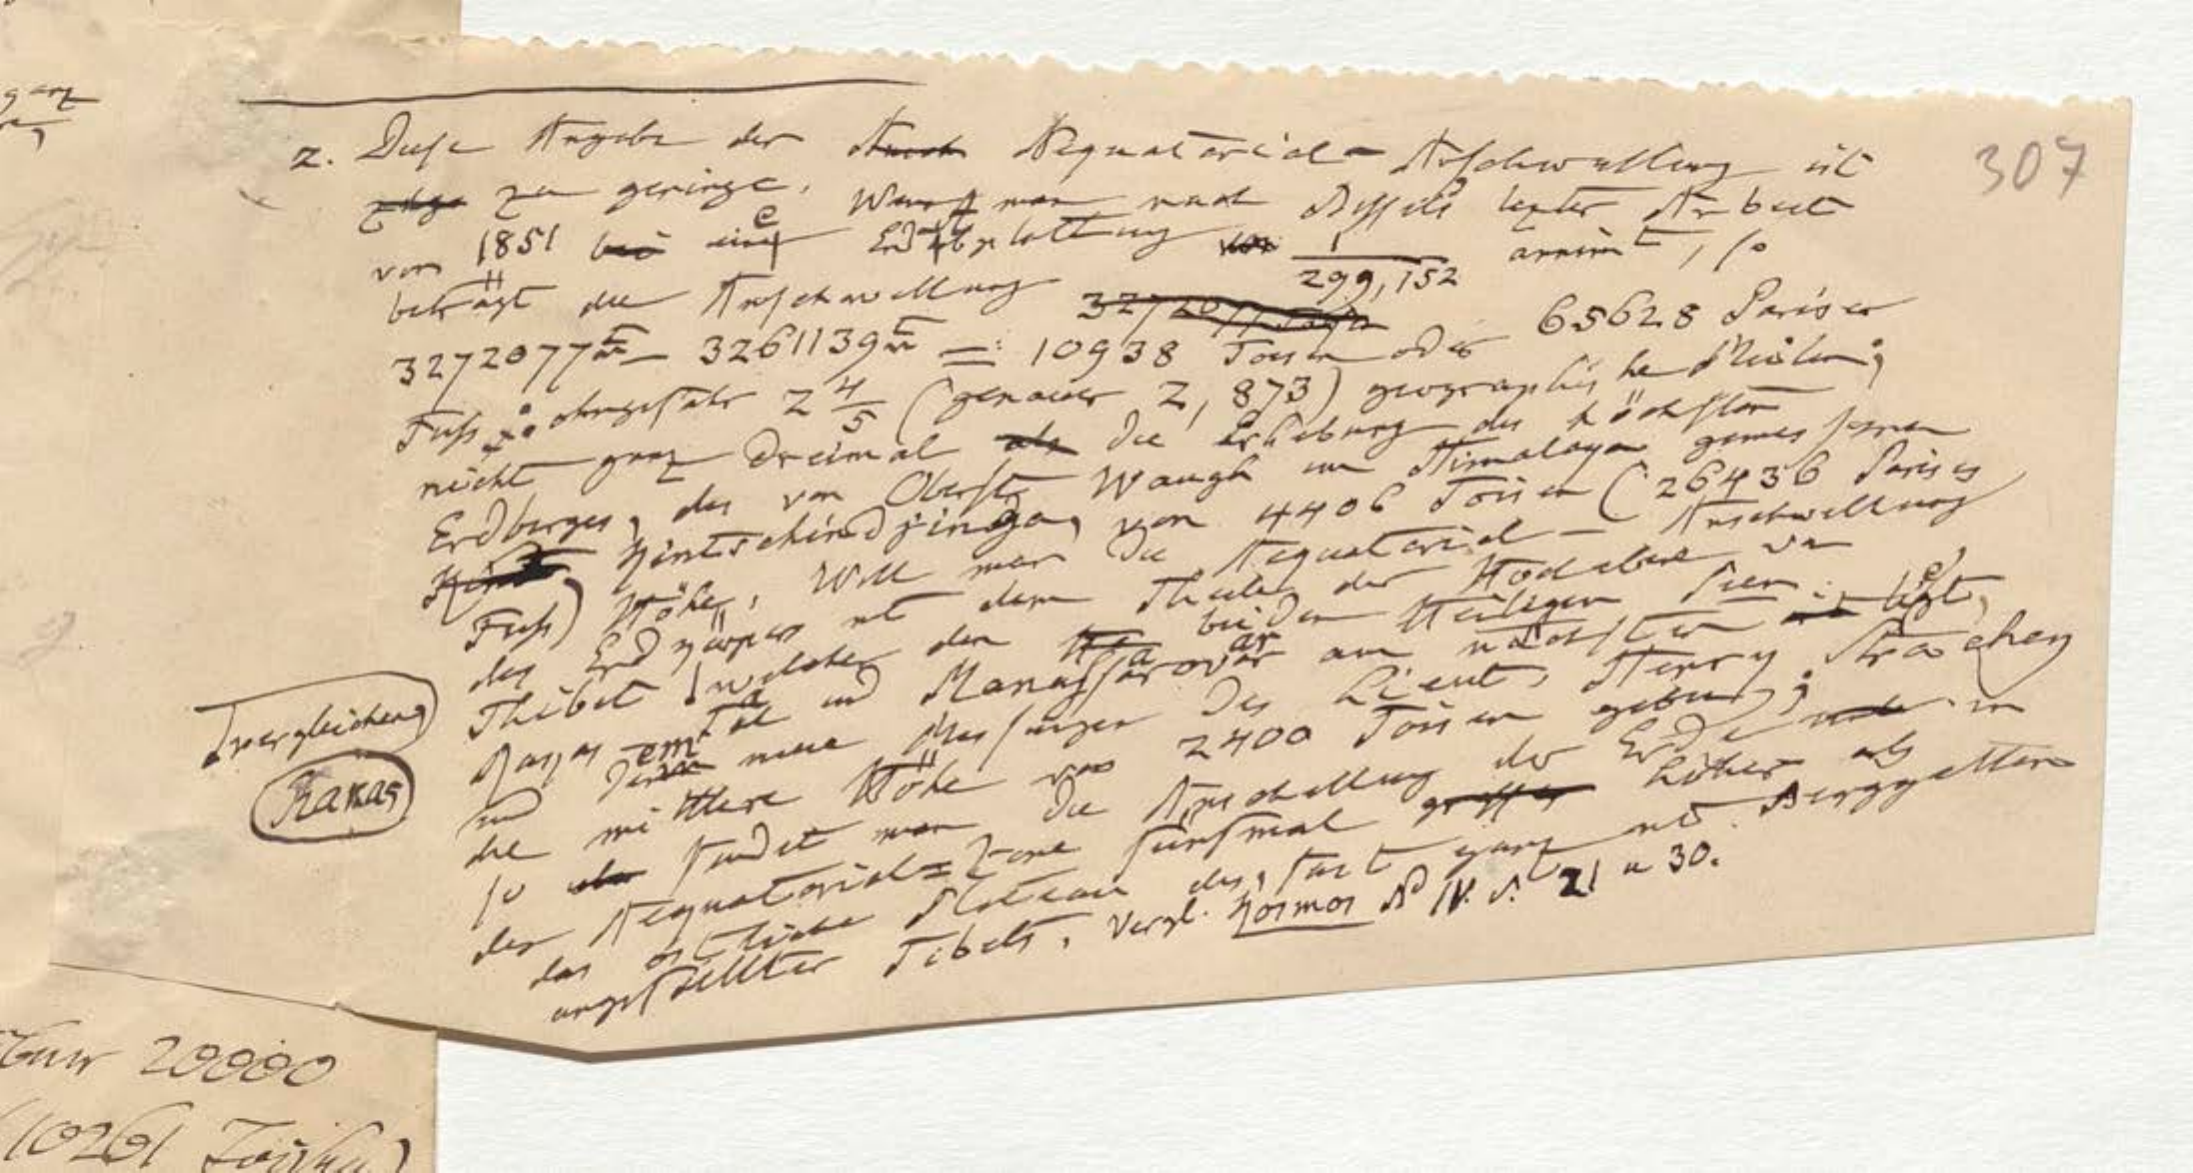 307
2. Diese Angabe der Aequatorial-Anschwellung ist
zu geringe. Wenn man nach Bessels letzter Arbeit
von 1851 eine Erdabplattung 1/299,152 annimt, so
beträgt die Anschwellung
3272077 t – 3261139 t = 10938 Toisen oder 65628 Pariser
Fuss: ohngefähr 2 4/5 (genauer 2,873) geographische Meilen;
nicht ganz dreimal die Erhebung des höchsten
Erdberges, des von Oberst Waugh im Himalaya gemessenen
Kintschindjinga, von 4406 Toisen (26436 Pariser
Fuss) Höhe. Will man die Aequatorial-Anschwellung
des Erdkörpers mit dem Theile der Hochebene von
Thibet vergleichen, welcher den beiden Heiligen Seen:
Rakas Tal und Manassarovar am nächsten liegt,
und dem neue Messungen des Lieut. Henry Strachey
die mittlere Höhe von 2400 Toisen geben;
so findet man die Anschwellung der Erde in
der Aequatorial=Zone fünfmal höher als
das östliche Plateau des, fast ganz mit Berggettern
angefüllten Tibets. Vergl. Kosmos Bd IV. S. 21 u 30.
vergleichen,
Rakas
ganz
20000
10261 Toisen)